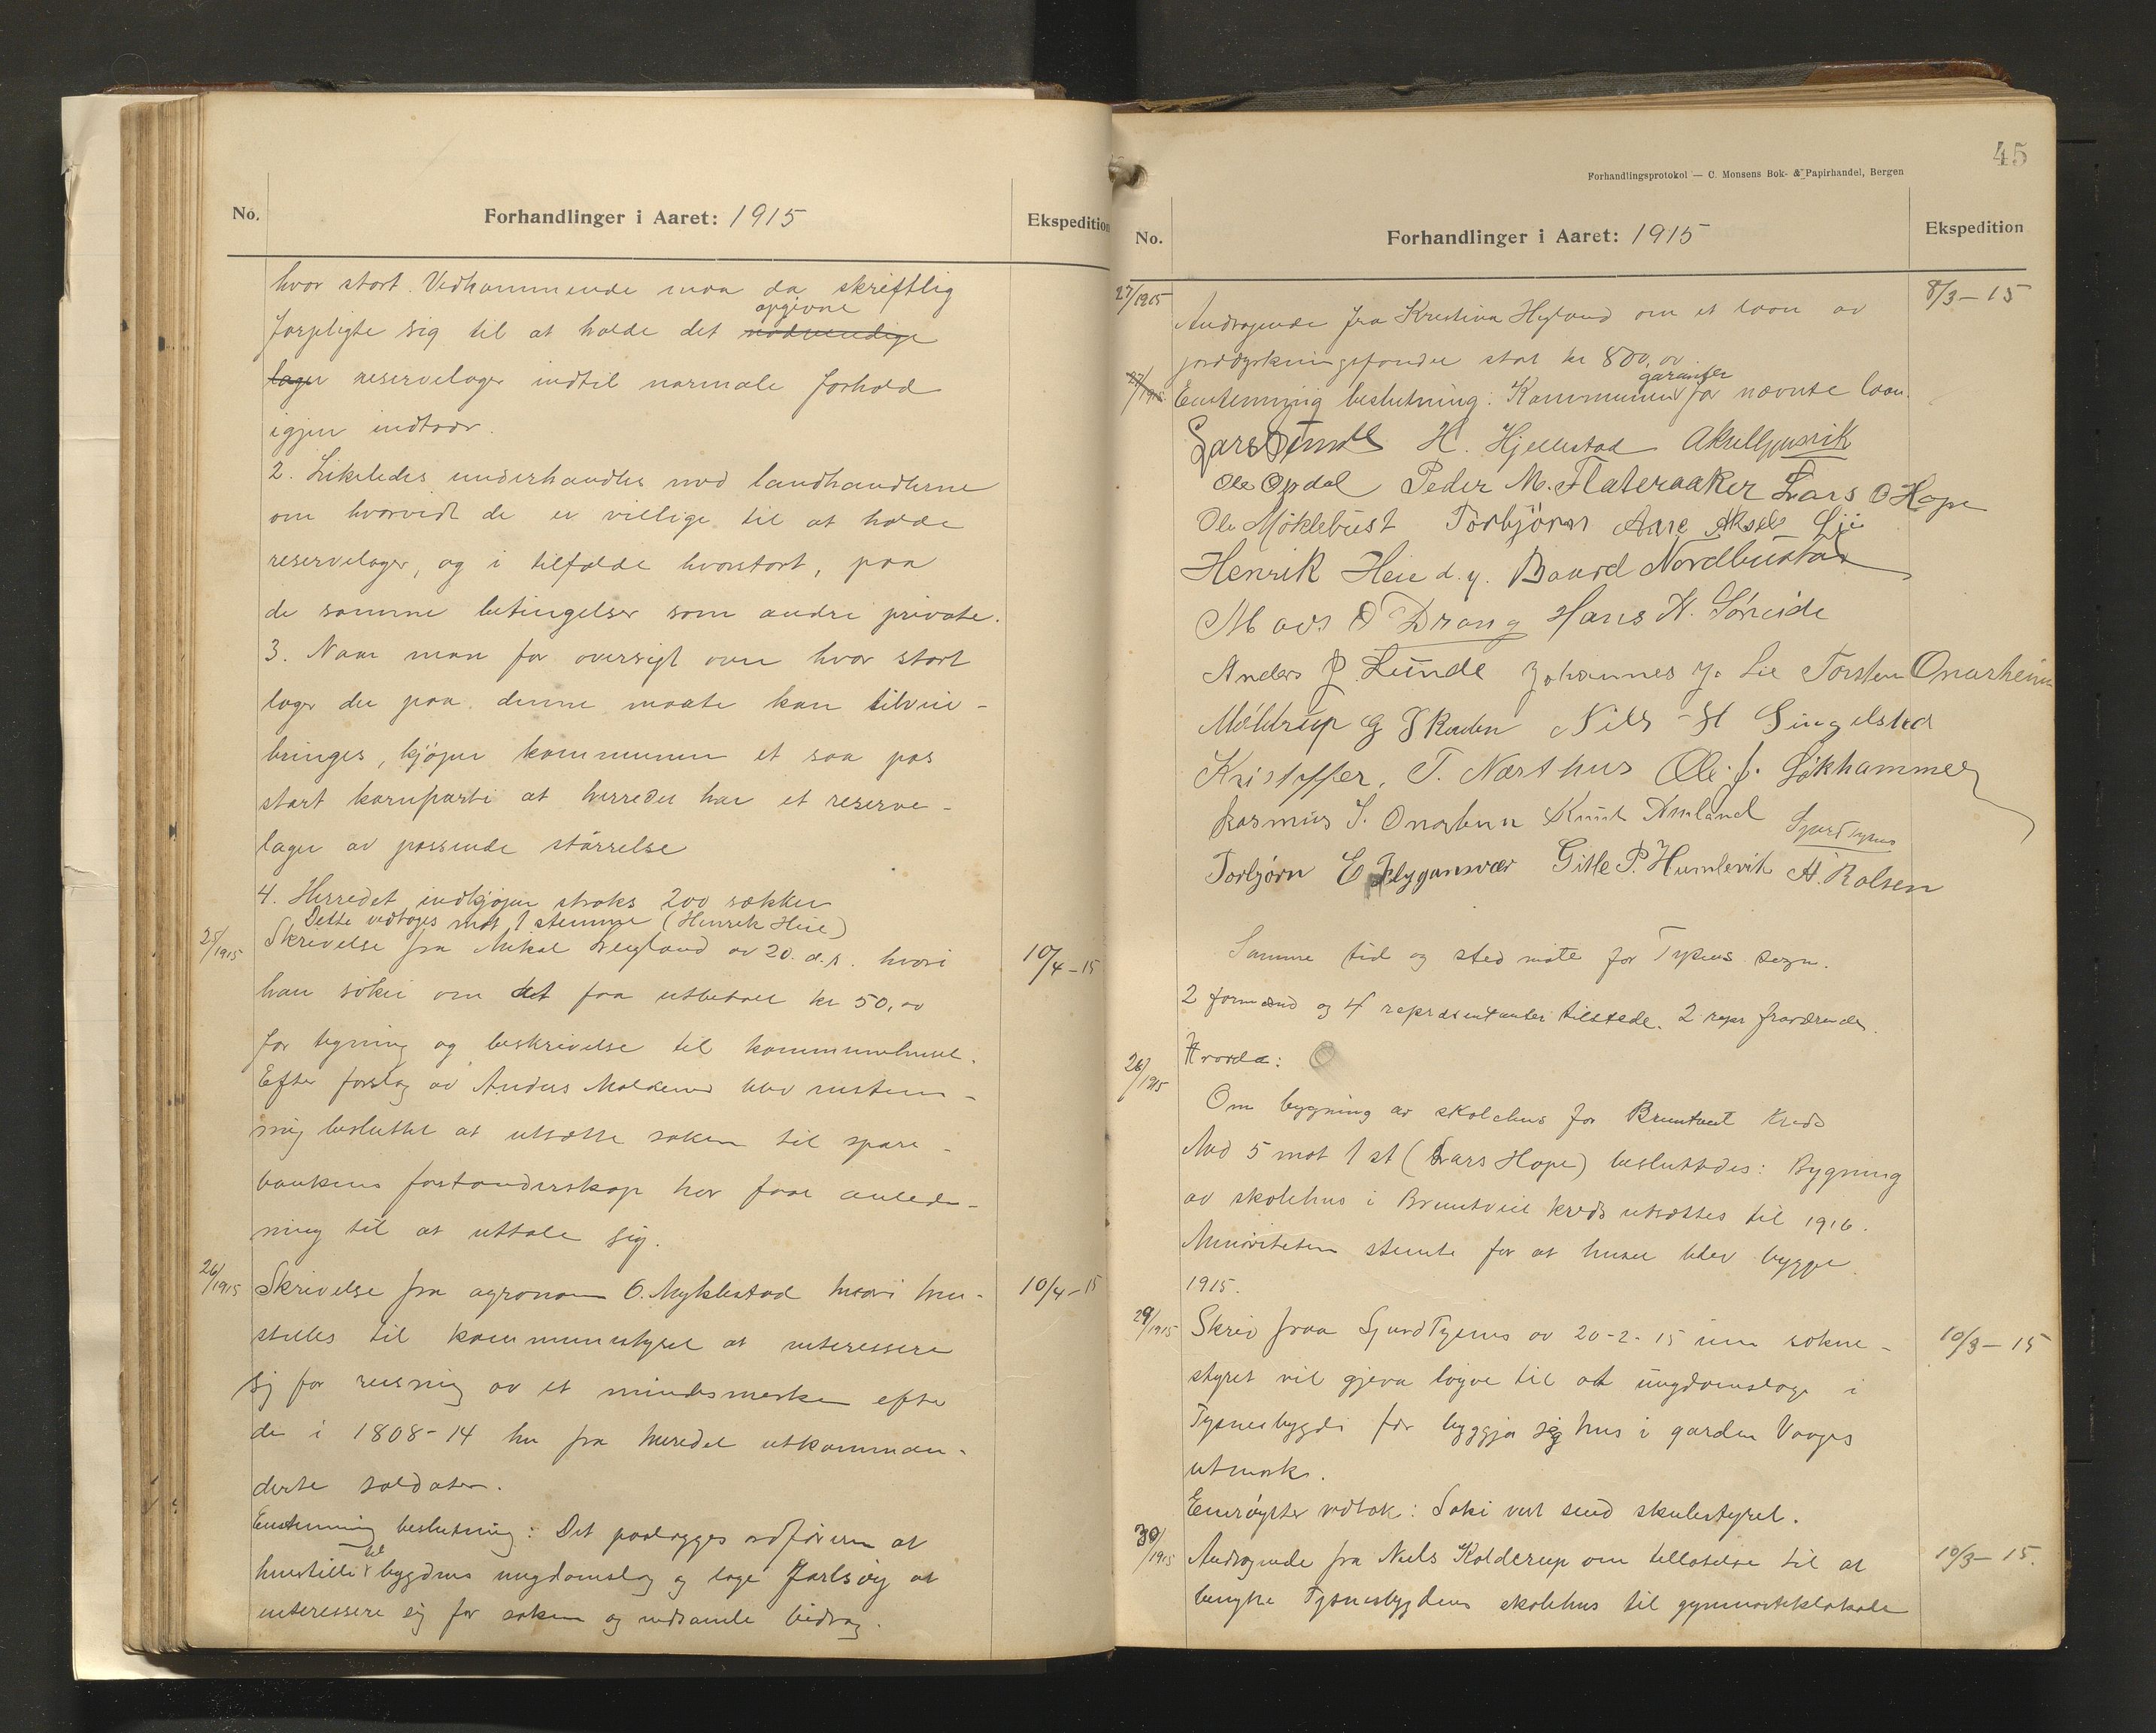 No.
Forhandlinger i Aaret: 1915
Ekspedition
hvor stort. Vedkommende maa da skriftlig
opgivne
forpligte sig til at holde det nødvendige
lager reservelager indtil normale forhold
igjen indtrær.
2. Likeledes underhandles med landhandlerne
om hvorvidt de er villige til at holde
reservelager, og i tilfælde hvorstort, paa
de samme betingelser som andre private.
3. Naar man faar oversigt over hvor stort
lager der paa denne maate kan tilveie-
bringes, kjøper kommunen et saa pas
stort kornparti at herredet har et reserve-
lager av passende størrelse
4. Herredet indkjøper straks 200 sækker
Dette vedtoges mot 1 stemme (Henrik Heie)
25/1915 Skrivelse fra Mikal av 20. d.s. hvori 10/4-15
han søker om at faa utbetalt kr 50,00
for tegning og beskrivelse til kommunehuset.
Efter forslag av Anders blev enstem-
mig besluttet at utsætte saken til spare-
bankens forstanderskap har faat anled-
ning til at uttale sig.
26/1915 Skrivelse fra agronom O. Myklestad hvori hen- 10/4-15
stilles til kommunestyret at interessere
sig for reisning av et mindesmerke efter
de i 1808-14 her fra herredet utkomman-
derte soldater.
Enstemmig beslutning: Det paalægges ordføreren at
til
henstille bygdens ungdomslag og lage Jarlsvig at
interessere sig for saken og indsamle bidrag.
45
Forhandlingsprotokol — C. Monsens Bok- & Papirhandel, Bergen
No.
Forhandlinger i Aaret: 1915
Ekspedition
27/1915 Andragende fra Kristina Hegland om et laan av 8/3-15
jorddyrkningsfondet stort kr 800,00.
garanterer
27/1915 Enstemmig beslutning: Kommunen for nævnte laan.
Lars Tveit H. Hjellestad
Ole Opdal Peder M. Flateraaker Lars O Hope
Ole Møklebust Torbjørn Aare Aksel Lie
Henrik Heie d.y. Baard Nordbustad
Mads O Drang Hans H. Søreide
Anders P. Lunde Johannes J. Lie Torsten Onarheim
Møldrup G Skaden Nils H Singelstad
Kristoffer T. Næsthus Ole J. Løkhammer
Rasmus S. Onarheim Knut Amland Sjurd Tysnes
Torbjørn E Flygansvær Gitle P. Humlevik H. Rolsen
Samme tid og sted møte for Tysnes sogn.
2 formænd og 4 repræsentanter tilstede. 2 repr fraværende.
28/1915
Om bygning av skolehus for Bruntveit kreds
Med 5 mot 1 st (Lars Hope) besluttedes: Bygning
av skolehus i Bruntveit kreds utsættes til 1916.
Minoriteten stemte for at huset blev bygget
1915.
29/1915 Skriv fraa Sjurd Tysnes av 20-2-15 um sokne- 10/3-15
styret vil gjeva løyve til at ungdomslage i
Tysnesbygdi fær byggja seg hus i garden Vaages
utmark.
Einrøystes vedtak: Saki vert send skulestyret.
30/1915 Andragende fra Niels Kolderup om tillatelse til at 10/3-15.
benytte Tysnesbygdens skolehus til gymnastiklokale